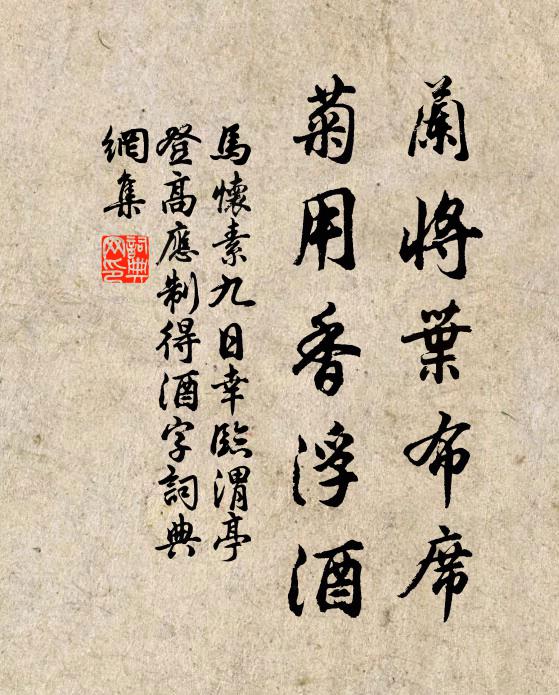 蘭將葉布席
菊用香浮酒
馬懷素九日幸臨渭亭
登高應制得酒字詞典
網集
詞典
网印